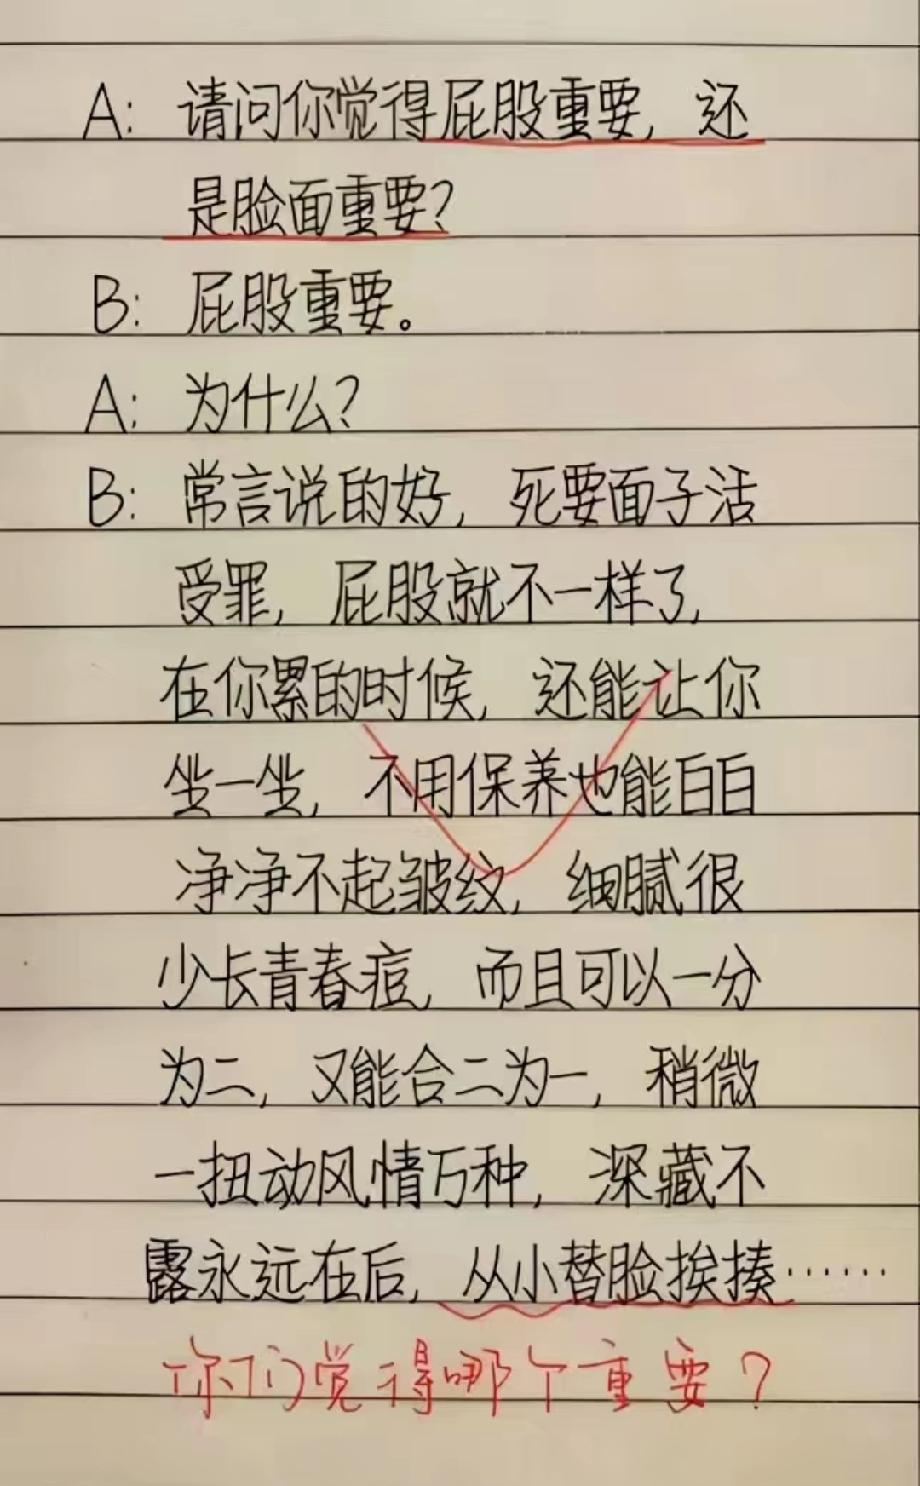 A: 请问你觉得屁股重要，还
是脸面重要？
B: 屁股重要。
A: 为什么？
B: 常言说的好，死要面子活
受罪，屁股就不一样了，
在你累的时候，还能让你
坐一坐，不用保养也能白白
净净不起皱纹，细腻很
少长青春痘，而且可以一分
为二，又能合二为一，稍微
一扭动风情万种，深藏不
露永远在后，从小替脸挨揍……
你们觉得哪个重要？